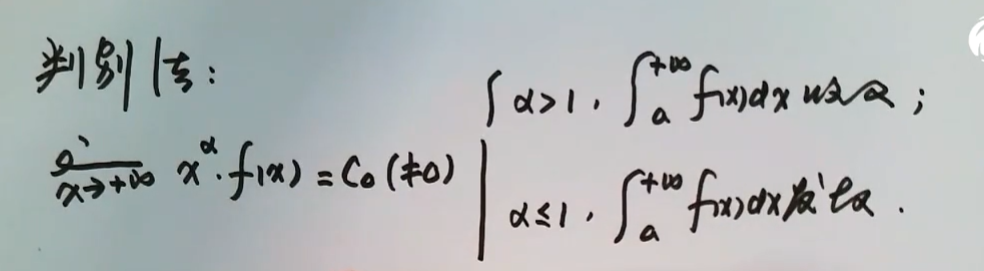 判别法:
lim x→+∞ x^α·f(x) = C₀(≠0)
{ α>1, ∫_a^{+∞} f(x)dx 收敛;
α≤1, ∫_a^{+∞} f(x)dx 发散.